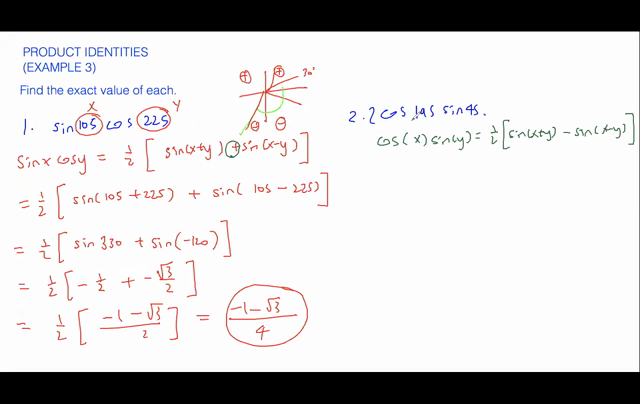 PRODUCT IDENTITIES
(EXAMPLE 3)
Find the exact value of each.
X Y
1. sin 105 cos 225
sin x cos y = 1/2 [ sin(x+y) + sin(x-y) ]
= 1/2 [ sin(105 + 225) + sin( 105 - 225) ]
= 1/2 [ sin 330 + sin(-120) ]
= 1/2 [ - 1/2 + - √3/2 ]
= 1/2 [ (-1 - √3)/2 ] = (-1 - √3)/4
+ + 30°
- -
2. 2 cos sin 45.
cos(x) sin(y) = 1/2 [ sin(x+y) - sin(x-y) ]